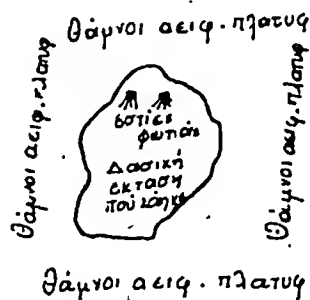 θάμνοι αειφ. πλατυφ
θάμνοι αειφ. πλατυφ
εστίες
φωτιάς
Δασική
εκταση
που κάηκε
θάμνοι αειφ. πλατυφ
θάμνοι αειφ. πλατυφ